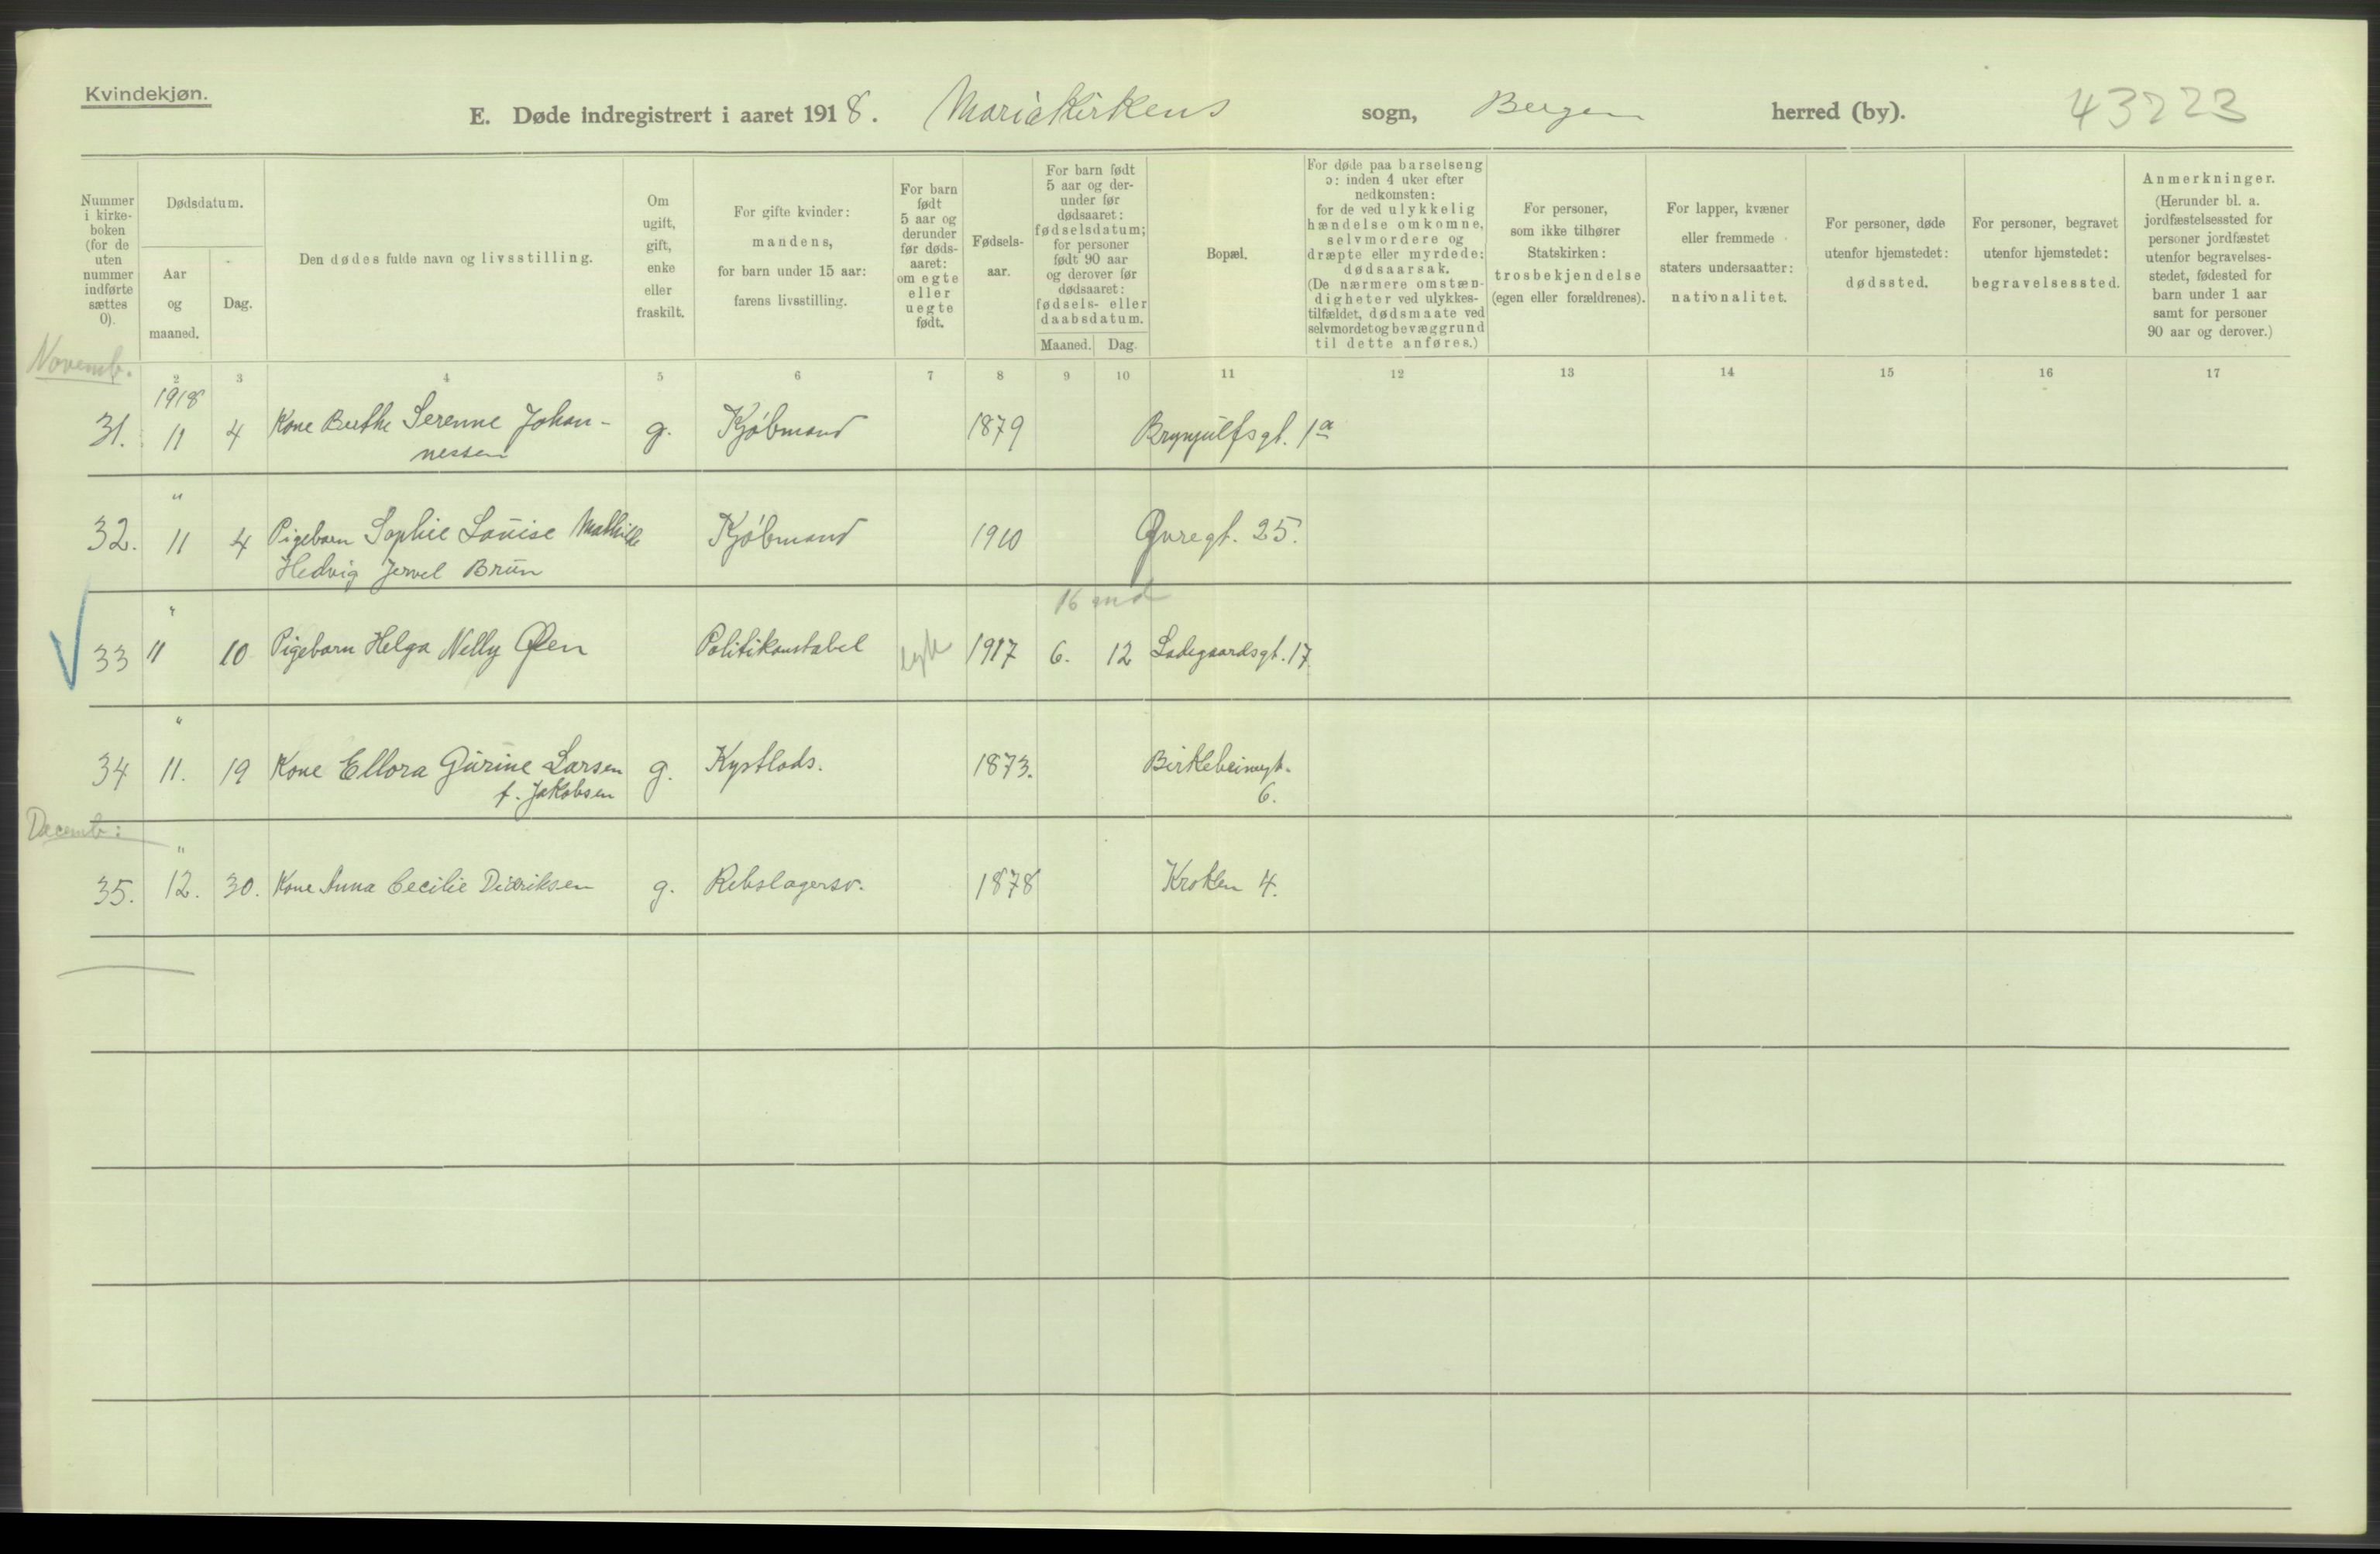 Kvindekjøn.
E. Døde indregistrert i aaret 1918. Mariakirkens sogn, Bergen herred (by). 43223
Nummer i kirke-boken (for de uten nummer indførte sættes 0).
Dødsdatum.
Aar og maaned.
Dag.
Den dødes fulde navn og livsstilling.
Om ugift, gift, enke eller fraskilt.
For gifte kvinder: mandens, for barn under 15 aar: farens livsstilling.
For barn født 5 aar og derunder før døds-aaret: om egte eller uegte født.
Fødsels-aar.
For barn født 5 aar og der-under før dødsaaret: fødselsdatum; for personer født 90 aar og derover før dødsaaret: fødsels- eller daabsdatum.
Maaned. Dag.
Bopæl.
For døde paa barselseng ɔ: inden 4 uker efter nedkomsten: for de ved ulykkelig hændelse omkomne, selvmordere og dræpte eller myrdede: dødsaarsak. (De nærmere omstæn-digheter ved ulykkes-tilfældet, dødsmaate ved selvmordet og bevæggrund til dette anføres.)
For personer, som ikke tilhører Statskirken: trosbekjendelse (egen eller forældrenes).
For lapper, kvæner eller fremmede staters undersaatter: nationalitet.
For personer, døde utenfor hjemstedet: dødssted.
For personer, begravet utenfor hjemstedet: begravelsessted.
Anmerkninger. (Herunder bl. a. jordfæstelsessted for personer jordfæstet utenfor begravelses-stedet, fødested for barn under 1 aar samt for personer 90 aar og derover.)
Novemb.
2 3 4 5 6 7 8 9 10 11 12 13 14 15 16 17
1918
31. 11 4 Kone Berthe Serenne Johan- g. Kjøbmand 1879 Brynjulfsgt. 1a
nessen
"
32. 11 4 Pigebarn Sophie Louise Mathilde Kjøbmand 1910 Øvregt. 25.
Hedvig Jervel Brun
" 16 mnd
33 11 10 Pigebarn Helga Nelly Øen Politikonstabel egte 1917 6. 12 Ladegaardsgt. 17.
"
34 11. 19 Kone Ellora Gurine Larsen g. Kystlods. 1873. Birkebeinergt.
f. Jakobsen 6.
Decemb:
"
35. 12. 30. Kone Anna Cecilie Didriksen g. Rebslagersv. 1878 Kroken 4.